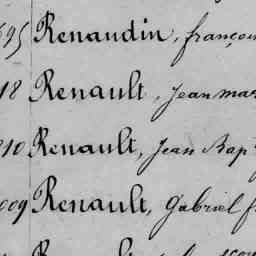 695 Renaudin, françois
18 Renault, Jean mar
210 Renault, Jean Bapt
009 Renault, Gabriel f
Renault